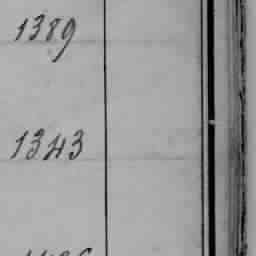 1389
1343